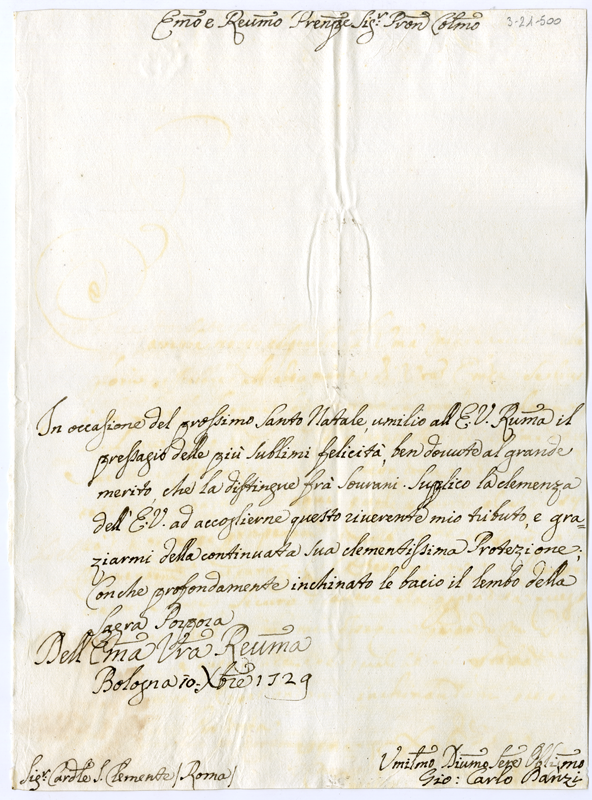 Emo e Reumo Prenpe Sig.r Pron Colmo
3-21-500
In occasione del prossimo Santo Natale umilio all'E.V. Ruma il
pressagio delle più sublimi felicità, ben dovute al grande
merito, che la distingue frà Sourani. Suplico la clemenza
dell'E.V. ad accoglierne questo riverente mio tributo, e gra=
ziarmi della continuata sua clementissima Protezione;
Con che profondamente inchinato le bacio il lembo della
sacra Porpora
Dell'Ema Vra Reuma
Bologna 10. Xbre 1729
Sig.r Cardle S. Clemente (Roma)
Umilmo Diumo Sere Obligmo
Gio: Carlo Banzi